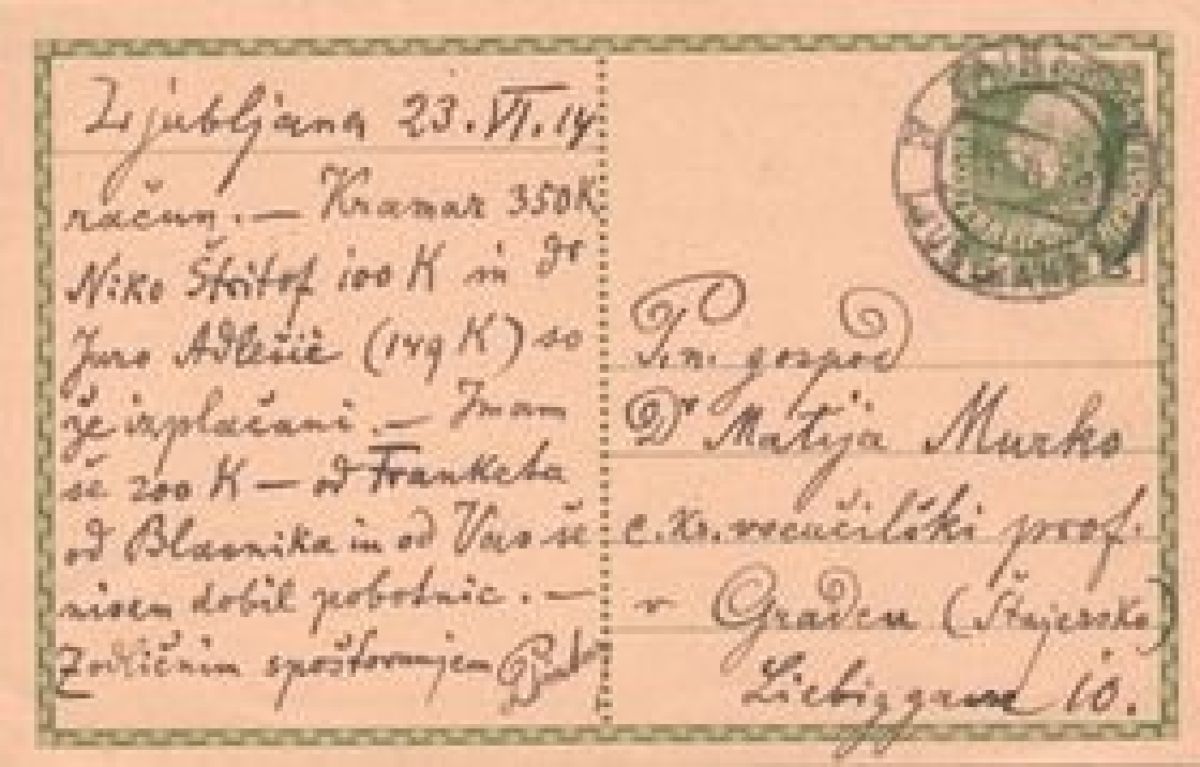 Ljubljana 23. VI. 14
račun. — Kramar 350 K
Niko Štritof 100 K in dr
Juro Adlešič (149 K) so
že izplačani. — Imam
še 200 K — od Franketa
od Blasnika in od Vas še
nisem dobil pobotnic. —
Z odličnim spoštovanjem
T. n. gospod
Dr Matija Murko
c. kr. vseučilški prof.
v Gradcu (Štajersko)
Liebiggasse 10.